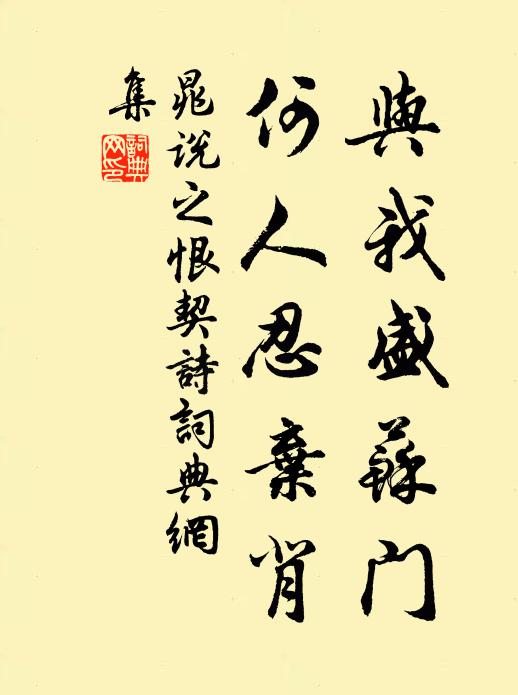 與我盛蘇門
何人忍棄背
晁說之恨契詩詞典網
集
詞典網印